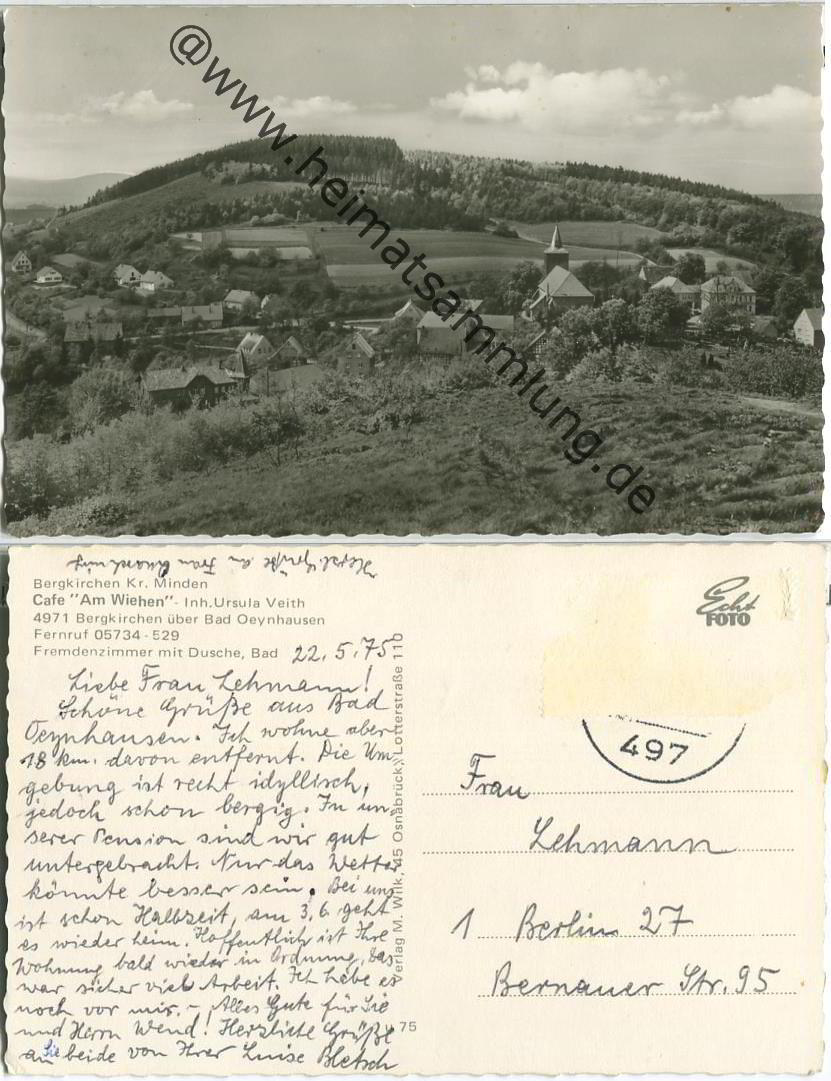 @www.heimatsammlung.de
Herzl. Grüße an Frau
Bergkirchen Kr. Minden
Cafe "Am Wiehen" - Inh. Ursula Veith
4971 Bergkirchen über Bad Oeynhausen
Fernruf 05734 - 529
Fremdenzimmer mit Dusche, Bad
22.5.75
Liebe Frau Lehmann!
Schöne Grüße aus Bad
Oeynhausen. Ich wohne aber
18 km. davon entfernt. Die Um-
gebung ist recht idyllisch,
jedoch schon bergig. In un-
serer Pension sind wir gut
untergebracht. Nur das Wetter
könnte besser sein. Bei uns
ist schon Halbzeit, am 3.6. geht
es wieder heim. Hoffentlich ist Ihre
Wohnung bald wieder in Ordnung, das
war sicher viel Arbeit. Ich habe es
noch vor mir. - Alles Gute für Sie
und Herrn Wend! Herzliche Grüße
an Sie beide von Ihrer Luise Bletsch
Verlag M. Wilk, 45 Osnabrück, Lotterstraße 110
75
Echt
FOTO
497
Frau
Lehmann
1 Berlin 27
Bernauer Str. 95